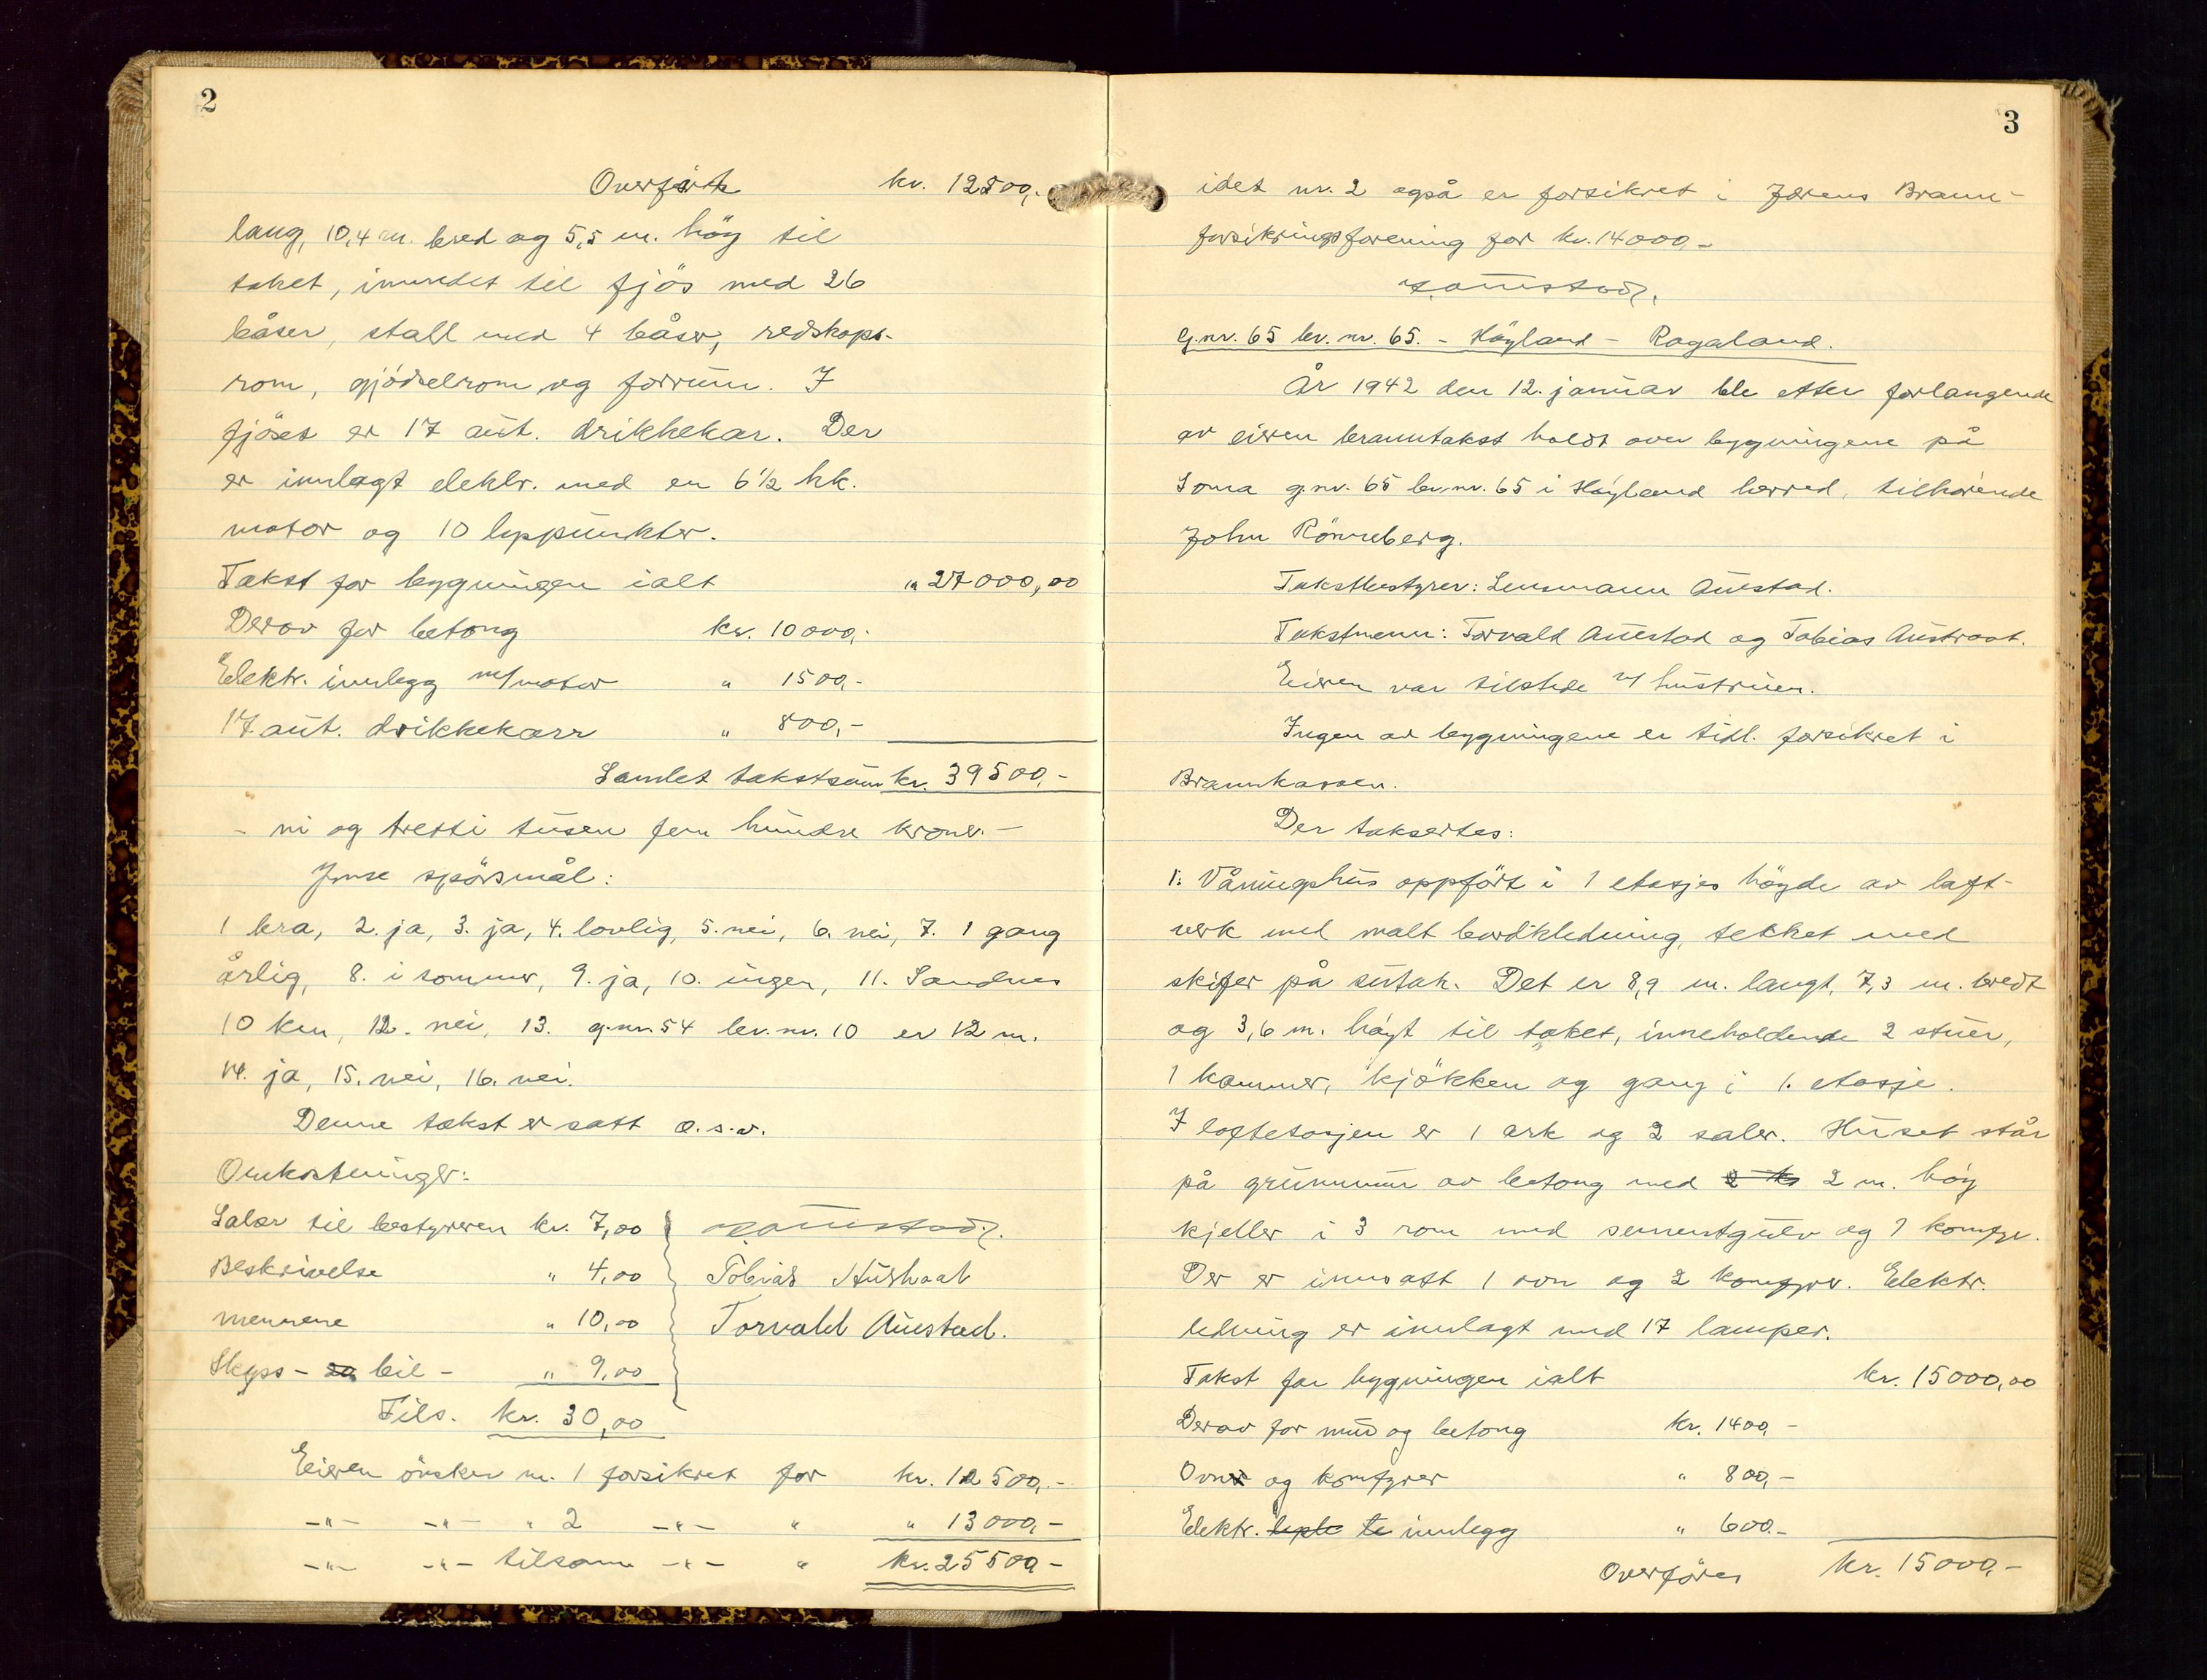 2
Overfört kr. 12500,-
lang, 10,4 m. bred og 5,5 m. höy til
taket, innredet til fjös med 26
båser, stall med 4 båser, redskaps-
rom, gjödselrom og forrum. I
fjöset er 17 aut. drikkekar. Der
er innlagt elektr. med en 6½ hk.
motor og 10 lyspunkter.
Takst for bygningen ialt " 27000,00
Derav for betong kr. 10000,-
Elektr. innlegg m/motor " 1500,-
17 aut. drikkekarr " 800,-
Samlet takstsum kr. 39500,-
- ni og tretti tusen fem hundre kroner. -
Jmse spörsmål:
1 bra, 2. ja, 3. ja, 4. lovlig, 5. nei, 6. nei, 7. 1 gang
årlig, 8. i sommer, 9. ja, 10. ingen, 11. Sandnes
10 km, 12. nei, 13. g.nr. 54 br.nr. 10 er 12 m.
14. ja, 15. nei, 16. nei.
Denne takst er satt o.s.v.
Omkostninger:
Salær til bestyreren kr. 7,00
Beskrivelse " 4,00 Tobias Austraat
mennene " 10,00 Torvald Auestad.
Skyss - bil - " 9,00
Tils. kr. 30,00
Eieren önsker nr. 1 forsikret for kr. 12500,-
-"- -"- " 2 -"- " " 13000,-
-"- -"- tilsam -"- " kr. 25500,-
3
idet nr. 2 også er forsikret i Jærens Brann-
forsikringsforening for kr. 14000,-
Auestad.
G.nr. 65 br. nr. 65. - Höyland - Rogaland.
År 1942 den 12. januar ble etter forlangende
av eieren branntakst holdt over bygningene på
Soma g.nr. 65 br.nr. 65 i Höyland herred, tilhörende
John Rönneberg.
Takstbestyrer: Lensmann Auestad.
Takstmenn: Torvald Auestad og Tobias Austraat.
Eieren var tilstede v/ hustruen.
Ingen av bygningene er tidl. forsikret i
Brannkassen.
Der taksertes:
1. Våningshus oppfört i 1 etasjes höyde av laft-
verk med malt bordkledning, tekket med
skifer på sutak. Det er 8,9 m. langt, 7,3 m. bredt
og 3,6 m. höyt til taket, inneholdende 2 stuer,
1 kammer, kjökken og gang i 1. etasje.
I loftetasjen er 1 ark og 2 saler. Huset står
på grunnmur av betong med 2 m. höy
kjeller i 3 rom med sementgulv og 1 komfyr.
Der er innsatt 1 ovn og 2 komfyrer. Elektr.
ledning er innlagt med 17 lamper.
Takst for bygningen ialt kr. 15000,00
Derav for mur og betong kr. 1400,-
Ovner og komfyrer " 800,-
Elektr. innlegg " 600,-
Overföres kr. 15000,-